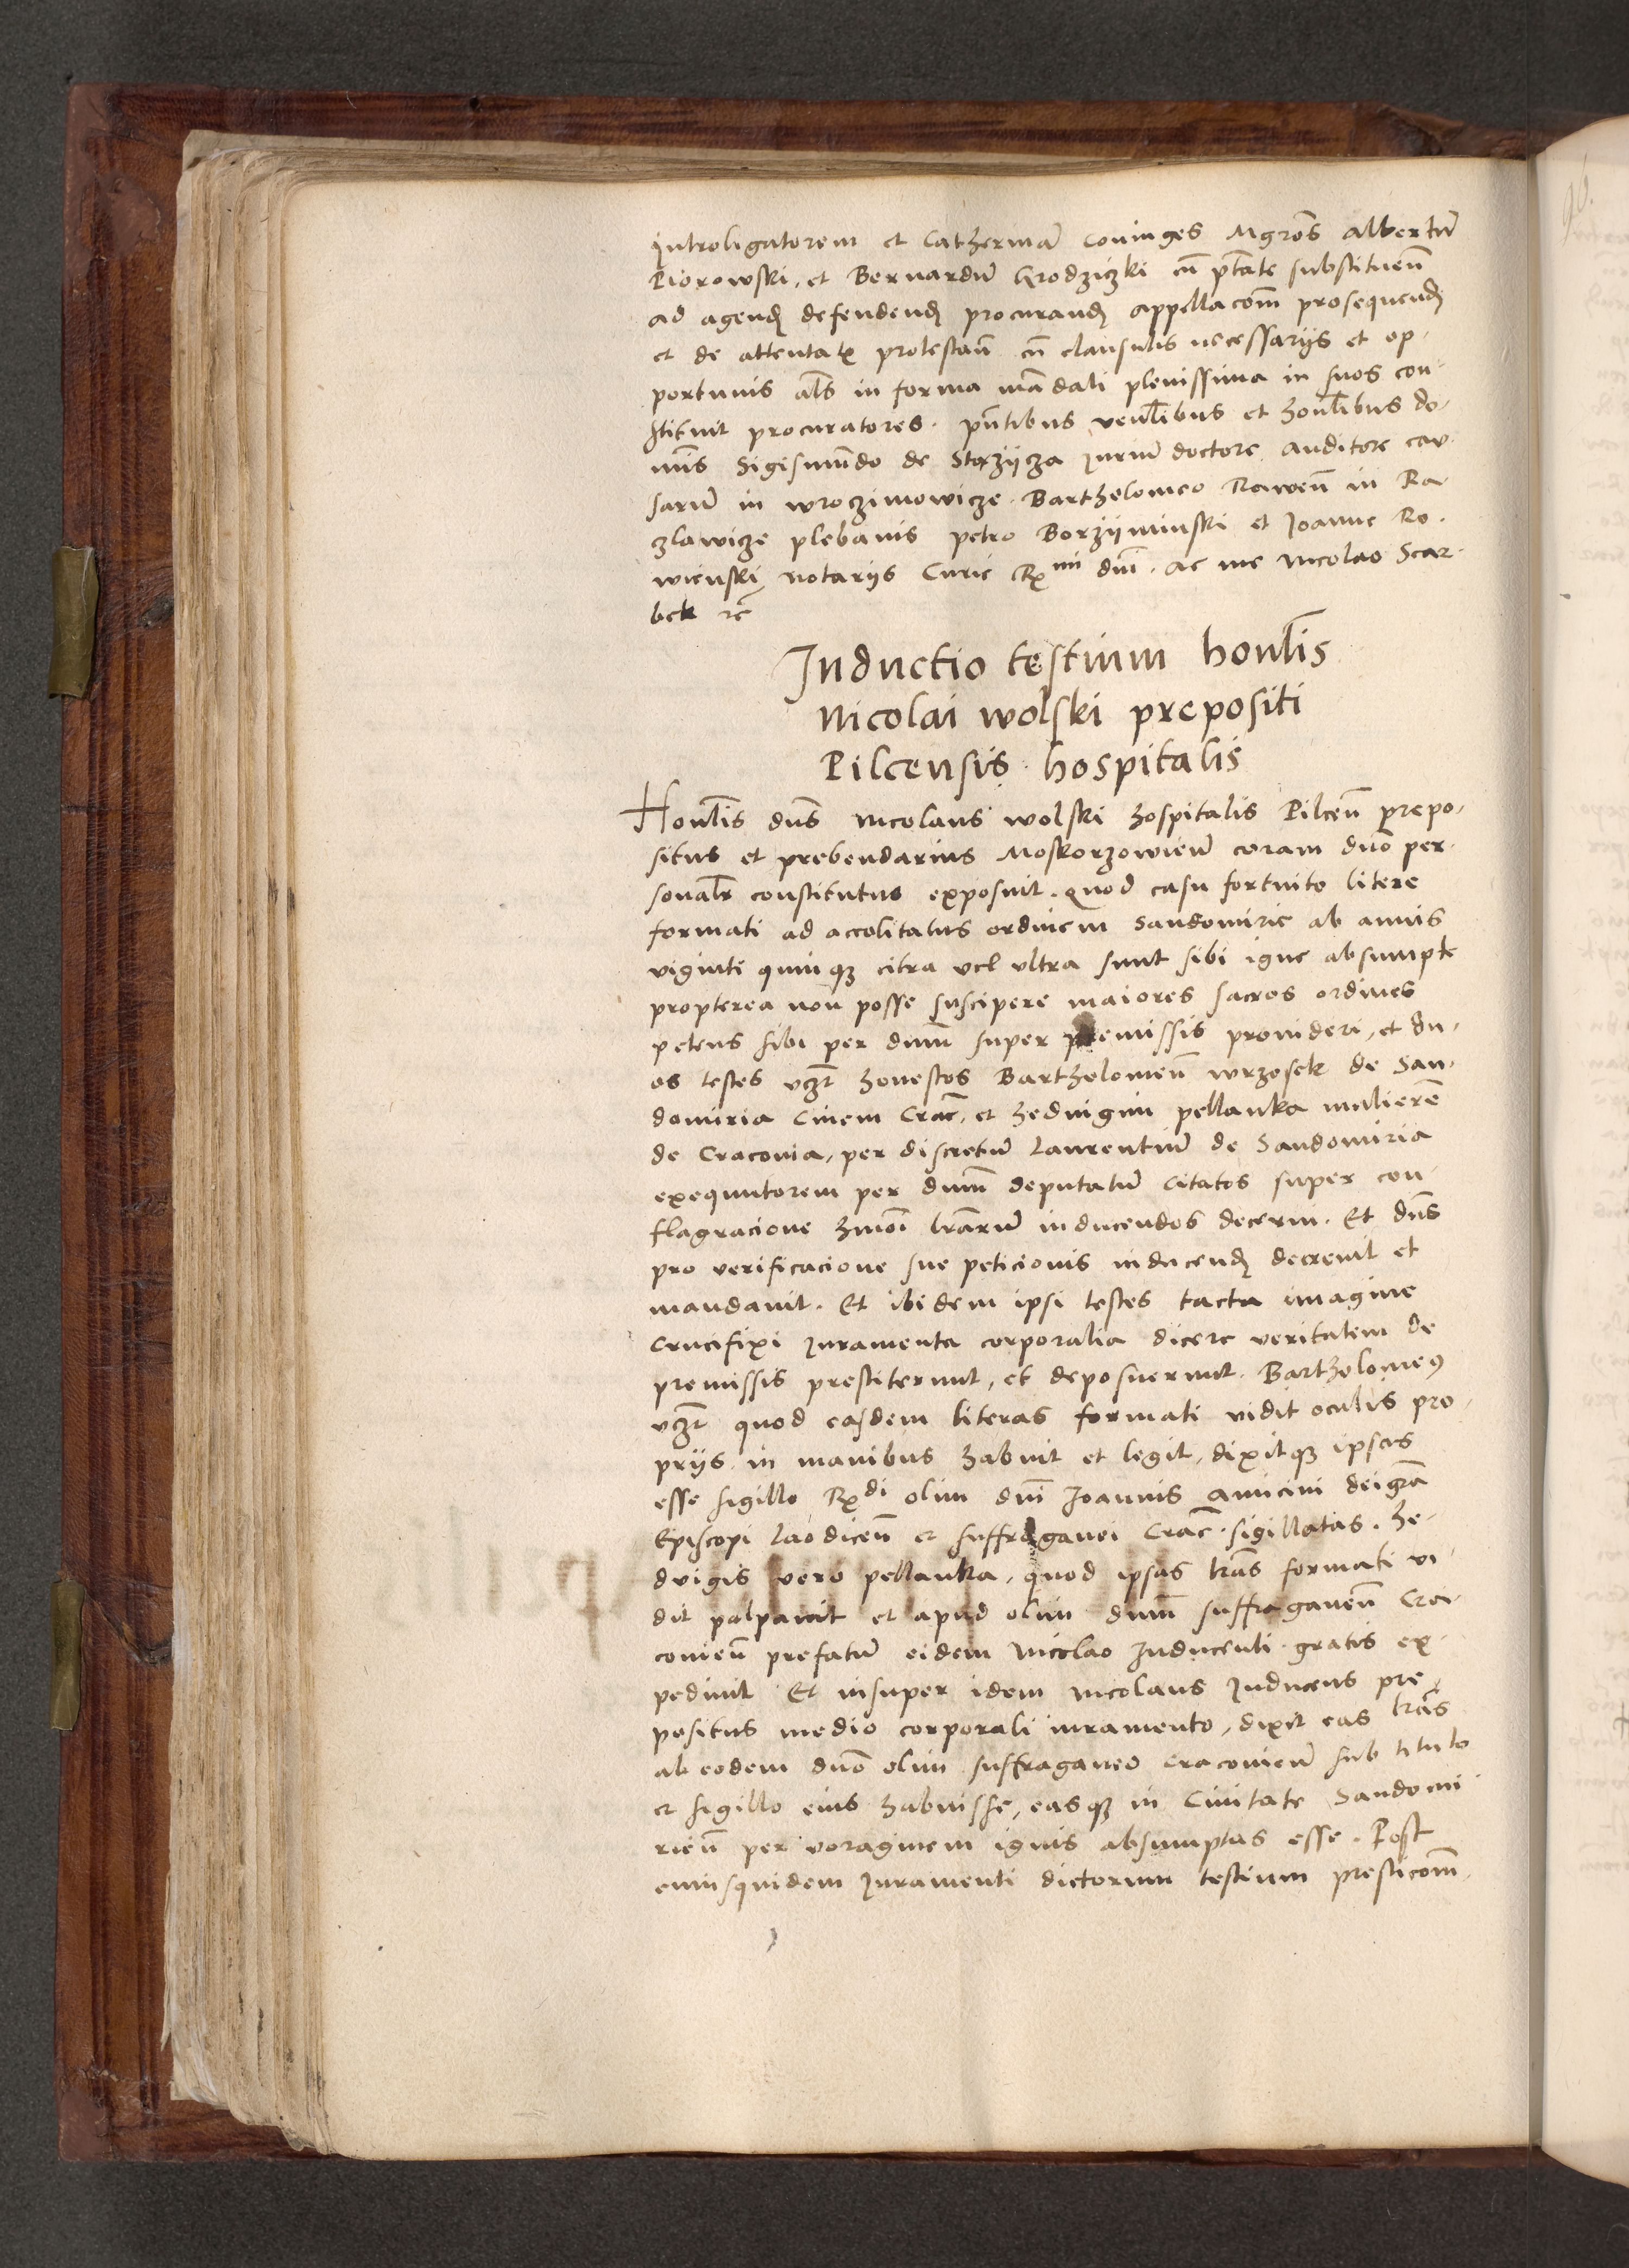 Introligatorem et Catherinā coniuges Mgros̄ Albertū
Piorowski, et Bernardū Grodziczki cū ptāte substituen̄
ad agend̄ defendend̄ procurand̄ appellacom̄ prosequend̄
et de attentatꝭ protestan̄ cū clausulis necessariis et op-
portunis als̄ in forma mādati plenissima in suos con-
stituit procuratores. pn̄tibus ven̄libus et hon̄libus do-
minis Sigismundo de Stezÿcza Juriū doctore, Auditore cau-
sarū in wroczimowicze. Bartholomeo Rawen̄ in Ra-
czlawicze plebanis petro Borzÿminski et Joanne Ro-
wienski notariis Curie R̄mi dn̄i. ac me Nicolao Scar-
bek rc̄
Inductio testium hon̄lis
Nicolai wolski prepositi
Pilcensis hospitalis
Hon̄lis dn̄s Nicolaus wolski hospitalis Pilcen̄ prepo-
situs et prebendarius Moskorzowien̄ coram dn̄o per-
sonalr̄ constitutus exposuit. Quod casu fortuito litere
formati ad accolitatus ordinem Sandomirie ab annis
viginti quinqꝫ citra vel ultra sunt sibi igne absumpte
propterea non posse suscipere maiores sacros ordines
petens sibi per dnm̄ super premissis provideri, et du-
os testes vczt̄ honestos Bartholomeū wrzosek de San-
domiria Civem Crac̄, et hedvigim pellanka mulierē
de Cracovia, per discretū Laurentiū de Sandomiria
exequutorem per dnm̄ deputatū citatos super con-
flagracione hmōi lrārū inducendos decerni. Et dn̄s
pro verificacione sue peticionis inducend̄ decrevit et
mandavit. Et ibidem ipsi testes tacta imagine
Crucifixi Juramenta corporalia dicere veritatem de
premissis prestiterunt, et deposuerunt. Bartholomeꝰ
vczt̄ quod easdem literas formati vidit oculis pro-
priis in manibus habuit et legit, dixitqꝫ ipsas
esse sigillo R̄di olim dn̄i Joannis Amicini dei grā
Episcopi Laodicen̄ et suffraganei Crac̄. sigillatas. He-
dvigis vero pellanka, quod ipsas lrās formati vi-
dit palpavit et apud olim dnm̄ suffraganeū Cra-
covien̄ prefatū eidem Nicolao Inducenti gratis ex-
pedivit Et insuper idem Nicolaus Inducens pre-
positus medio corporali iuramento, dixit eas lrās
ab eodem dn̄o olim suffraganeo Cracovien̄ sub titulo
et sigillo eius habuisse, easqꝫ in Civitate Sandomi-
rien̄ per voraginem ignis absumptas esse. Post
cuiusquidem Juramenti dictorum testium presticom̄